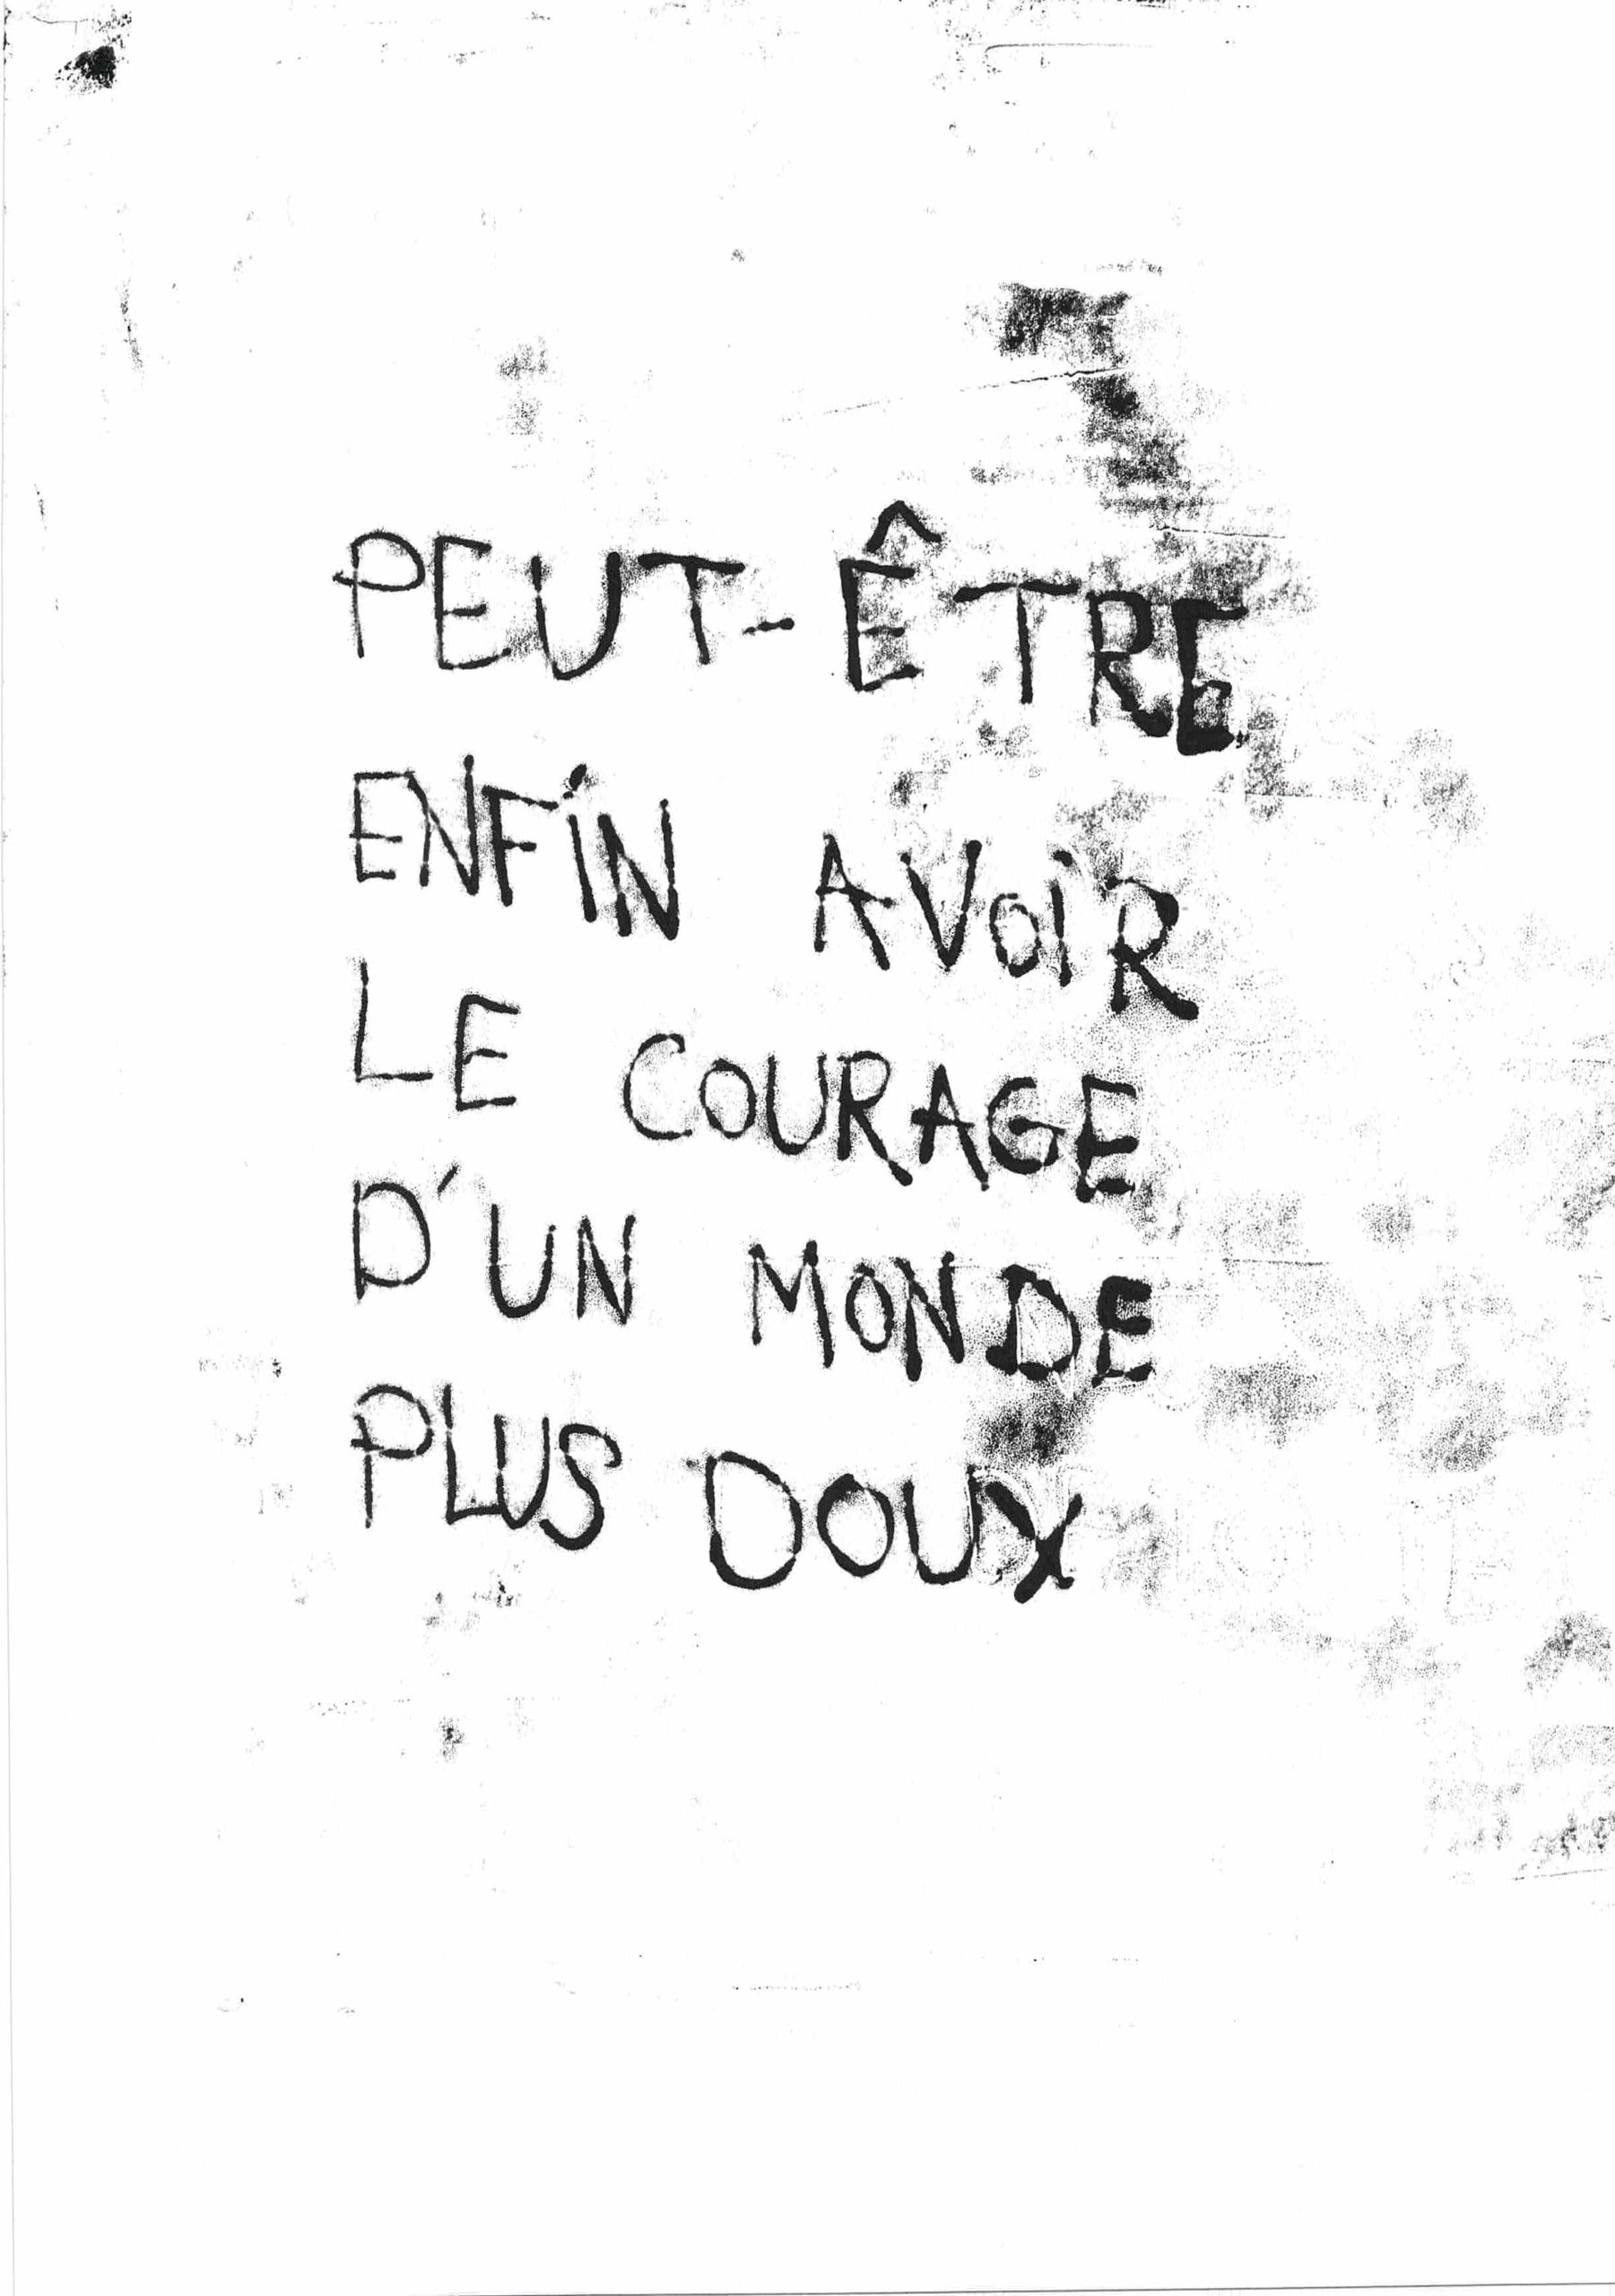 PEUT-ÊTRE
ENFIN AVOIR
LE COURAGE
D'UN MONDE
PLUS DOUX